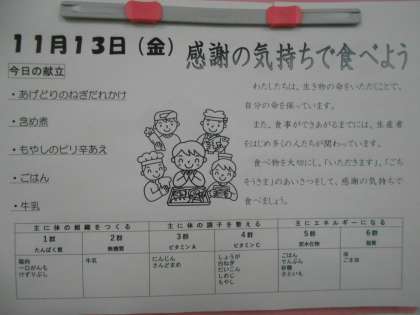 11月13日(金)
感謝の気持ちで食べよう
今日の献立
・あげどりのねぎだれかけ
・含め煮
・もやしのピリ辛あえ
・ごはん
・牛乳
わたしたちは、生き物の命をいただくことで、
自分の命を保っています。
また、食事ができあがるまでには、生産者
をはじめ多くの人たちが関わっています。
食べ物を大切にし、「いただきます」、「ごち
そうさま」のあいさつをして、感謝の気持ちで
食べましょう。
主に体の組織をつくる
主に体の調子を整える
主にエネルギーになる
1群 2群 3群 4群 5群 6群
たんぱく質 無機質 ビタミンA ビタミンC 炭水化物 脂質
鶏肉
一口がんも
けずりぶし
牛乳
にんじん
さんどまめ
しょうが
白ねぎ
だいこん
しめじ
もやし
ごはん
でんぷん
砂糖
さといも
油
ごま油